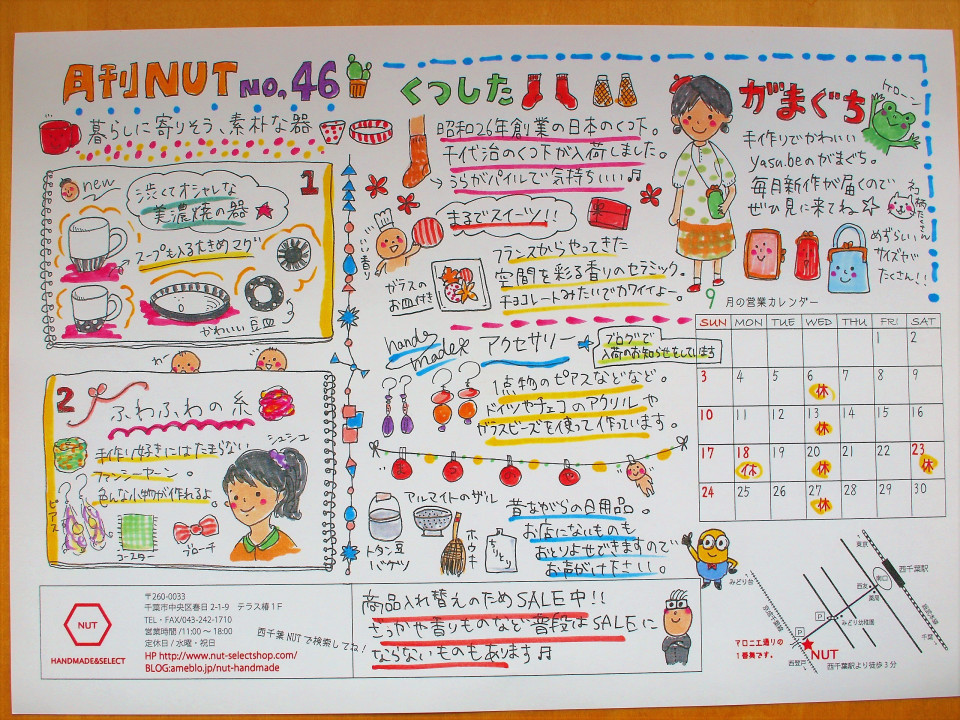 月刊NUT NO.46
暮らしに寄りそう、素朴な器
new
渋くてオシャレな
美濃焼の器
1
スープも入る大きめマグ
かわいい豆皿
2
ふわふわの糸
手作り好きにはたまらない
ファンシーヤーン。
色んな小物が作れるよ。
シュシュ
ピアス
コースター
ブローチ
くつした
昭和26年創業の日本のくつ下。
千代治のくつ下が入荷しました。
→うらがパイルで気持ちいい♫
まるでスイーツ!!
いい香り
フランスからやってきた
空間を彩る香りのセラミック。
チョコレートみたいでカワイイよー。
ガラスの
お皿付き
handmade アクセサリー
ブログで
入荷のお知らせをしています
1点物のピアスなどなど。
ドイツやチェコのアクリルや
ガラスビーズを使って作っています。
アルマイトのザル
トタン豆
バケツ
ホウキ
ちりとり
昔ながらの日用品。
お店にないものも
おとりよせできますので
お声がけ下さい。
がまぐち
ケローン
手作りでかわいい
yasu.beのがまぐち。
毎月新作が届くので
ぜひ見に来てね☆
ネコ
柄たくさん
めずらしい
サイズが
たくさん!!
9月の営業カレンダー
SUN MON TUE WED THU FRI SAT
1 2
3 4 5 6 7 8 9
休
10 11 12 13 14 15 16
休
17 18 19 20 21 22 23
休 休 休
24 25 26 27 28 29 30
休
NUT
HANDMADE&SELECT
〒260-0033
千葉市中央区春日2-1-9 テラス椿1F
TEL・FAX/043-242-1710
営業時間/11:00～18:00
定休日/水曜・祝日
HP http://www.nut-selectshop.com/
BLOG:ameblo.jp/nut-handmade
西千葉NUTで検索してね!
商品入れ替えのためSALE中!!
ざっかや香りものなど普段はSALEに
ならないものもあります♫
みどり台
東京
西千葉駅
南口
西友
薬局
みどり幼稚園
京成千葉線
総武本線
千葉
P
P
マロニエ通りの
1番奥です。
NUT
西登戸
西千葉駅より徒歩3分